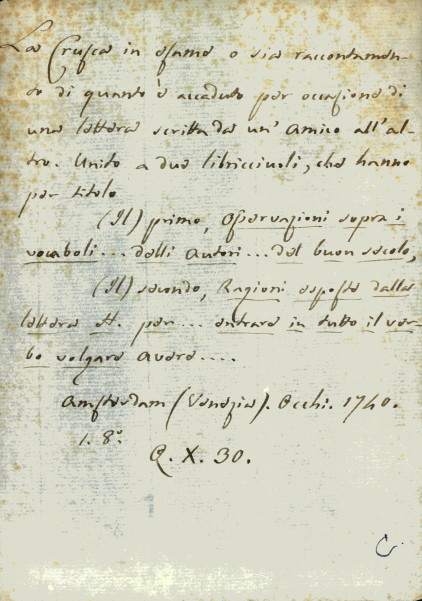 La Crusca in esame o sia raccontamen-
to di quanto è accaduto per occasione di
una lettera scritta da un' Amico all' al-
tro. Unito a due libricciuoli, che hanno
per titolo
(Il) primo, Osservazioni sopra i
vocaboli... delli Autori... del buon secolo,
(Il) secondo, Ragioni esposte dalla
lettera H. per... entrare in tutto il ver-
bo volgare Avere....
Amsterdam (Venezia). Occhi. 1740.
1. 8.º
Q. X. 30.